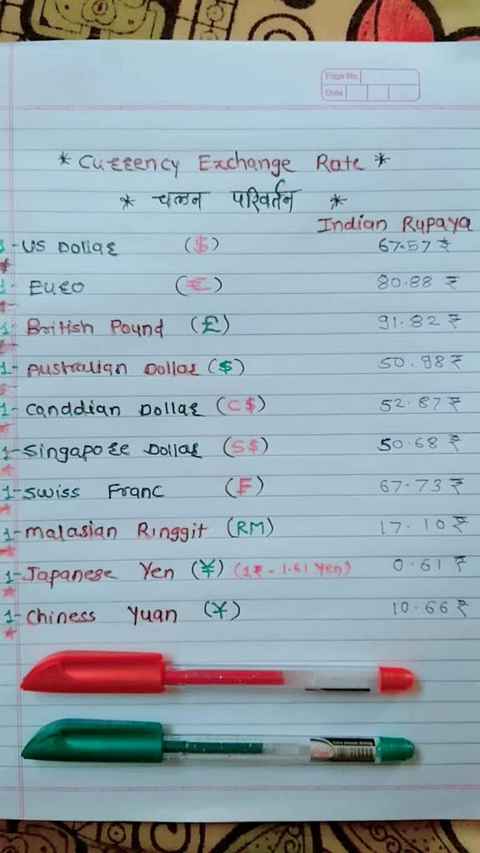 Page No.
Date
* Currency Exchange Rate *
* चलन परिवर्तन *
Indian Rupaya
1-US Dollar ($) 67.57 ₹
1- Euro (€) 80.88 ₹
1- British Pound (£) 91.82 ₹
1- Australian Dollar ($) 50.98 ₹
1- Canddian Dollar (C$) 52.87 ₹
1-Singapore Dollar (S$) 50.68 ₹
1-Swiss Franc (F) 67.73 ₹
1-malasian Ringgit (RM) 17.10 ₹
1-Japanese Yen (¥) (1₹ - 1.61 Yen) 0.61 ₹
1- Chiness Yuan (¥) 10.66 ₹